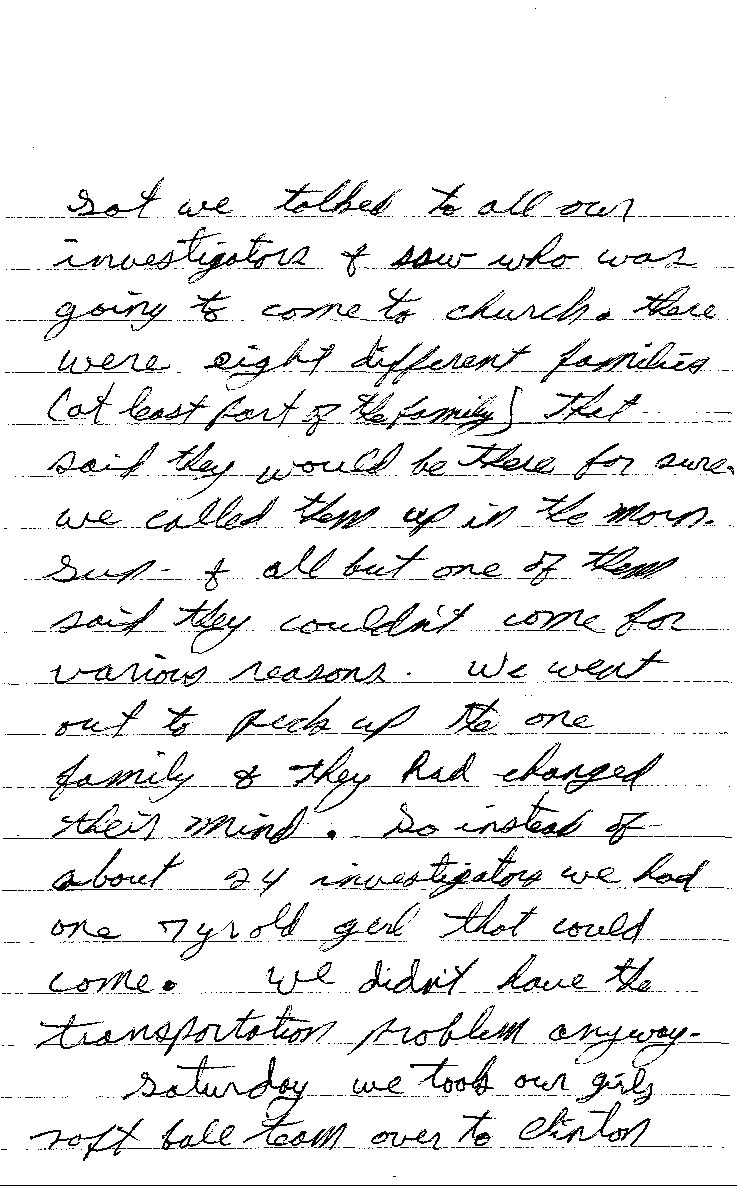 Sat we talked to all our
investigators & saw who was
going to come to church. there
were eight different families
(at least part of the family) that
said they would be there for sure.
we called them up in the morn.
Sun. & all but one of them
said they couldn't come for
various reasons. We went
out to pick up the one
family & they had changed
their mind. So instead of
about 24 investigators we had
one 7 yr old girl that could
come. We didn't have the
transportation problem anyway.
Saturday we took our girls
soft ball team over to Clinton